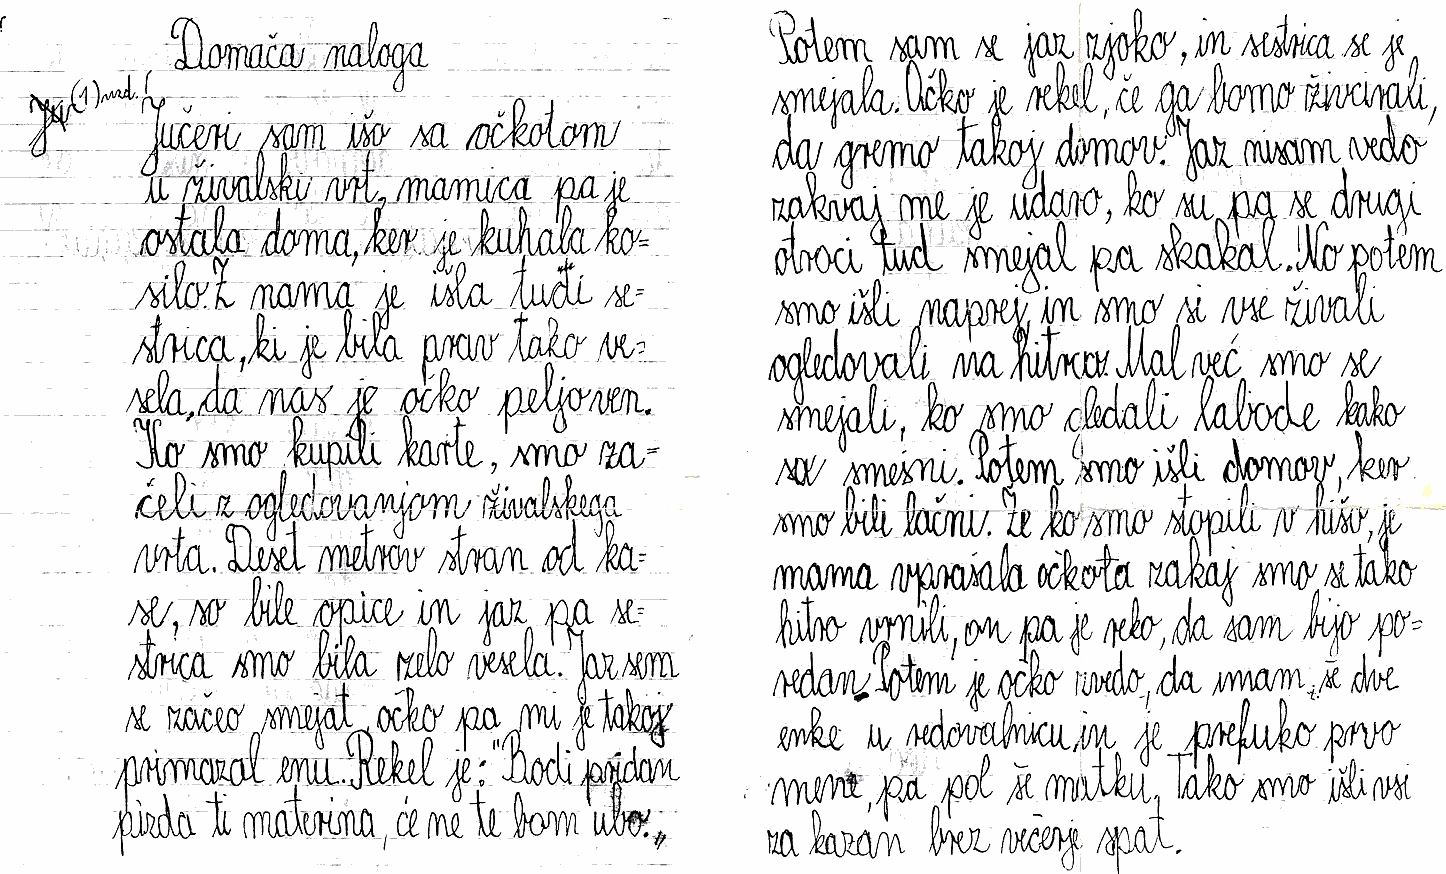 Domača naloga
(1) nzd.!
Jučeri sam išo sa očkotom
u živalski vrt, mamica pa je
ostala doma, ker je kuhala ko=
silo. Z nama je išla tudi se=
strica, ki je bila prav tako ve=
sela, da nas je očko peljo ven.
Ko smo kupili karte, smo za=
čeli z ogledovanjom živalskega
vrta. Deset metrov stran od ka=
se, so bile opice in jaz pa se=
strica smo bila zelo vesela. Jaz sem
se začeo smejat, očko pa mi je takoj
primazal enu. Rekel je: "Bodi pridan
pizda ti materina, če ne te bom ubo."
Potem sam se jaz zjoko, in sestrica se je
smejala. Očko je rekel, če ga bomo živcirali,
da gremo takoj domov. Jaz nisam vedo
zakvaj me je udaro, ko su pa se drugi
otroci tud smejal pa skakal. No potem
smo išli naprej, in smo si vse živali
ogledovali na hitro. Mal več smo se
smejali, ko smo gledali labode kako
so smešni. Potem smo išli domov, ker
smo bili lačni. Že ko smo stopili v hišo, je
mama vprašala očkota zakaj smo se tako
hitro vrnili, on pa je reko, da sam bijo po=
redan. Potem je očko zvedo, da imam še dve
enke u redovalnicu, in je prefuko prvo
mene, pa pol še matku. Tako smo išli vsi
za kazan brez večerje spat.